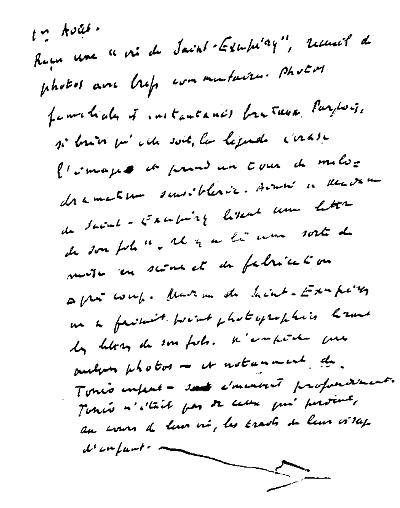 1er Août.
Reçu une "vie de Saint-Exupéry", recueil de
photos avec brefs commentaires. Photos
familiales et instantanés brutaux. Parfois,
si brève qu'elle soit, la légende écrase
l'image et prend un tour de mélo-
dramatique sensiblerie. Ainsi "Madame
de Saint-Exupéry lisant une lettre
de son fils". Il y a là une sorte de
mise en scène et de fabrication
après coup. Madame de Saint-Exupéry
ne se faisait point photographier lisant
les lettres de son fils. N'empêche que
quelques photos — et notamment de
Tonio enfant — m'émeuvent profondément.
Tonio n'était pas de ceux qui perdent,
au cours de leur vie, les traits de leur visage
d'enfant.